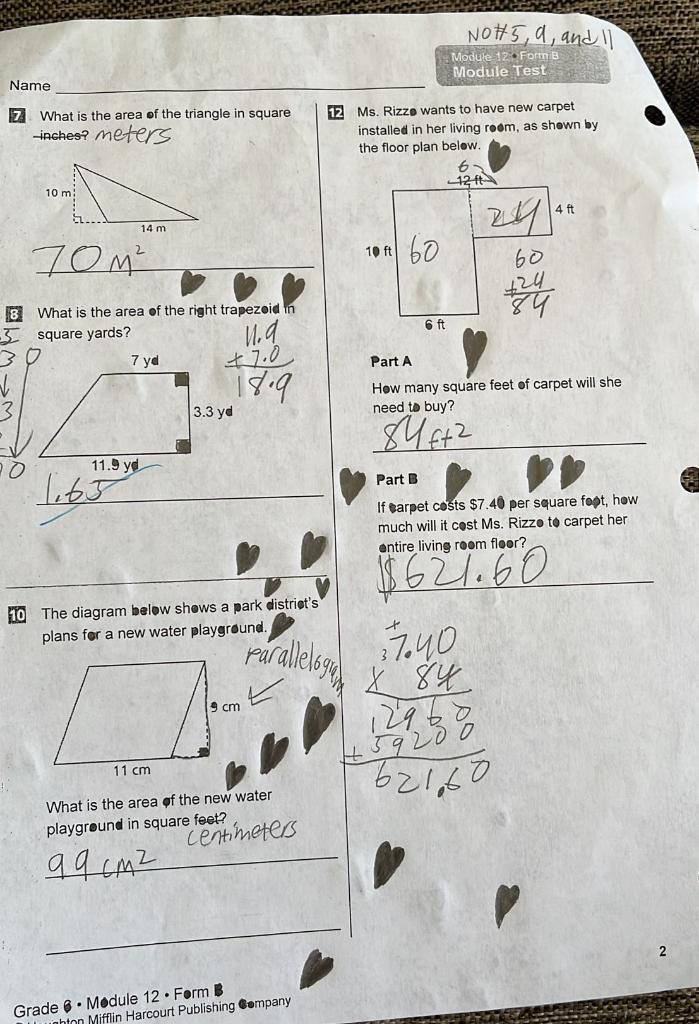 NO#5, 9, and 11
Module 12 • Form B
Module Test
Name
7 What is the area of the triangle in square
inches? meters
10 m
14 m
70 m²
8 What is the area of the right trapezoid in
square yards?
11.9
+ 7.0
18.9
7 yd
3.3 yd
11.9 yd
1.65
10 The diagram below shows a park district's
plans for a new water playground.
parallelogram
9 cm
11 cm
What is the area of the new water
playground in square feet?
centimeters
99 cm²
12 Ms. Rizzo wants to have new carpet
installed in her living room, as shown by
the floor plan below.
6
12 ft
24
4 ft
10 ft
60
60
+24
84
6 ft
Part A
How many square feet of carpet will she
need to buy?
84 ft2
Part B
If carpet costs $7.40 per square foot, how
much will it cost Ms. Rizzo to carpet her
entire living room floor?
$621.60
7.40
x 84
2960
+59200
621.60
2
Grade 6 • Module 12 • Form B
Houghton Mifflin Harcourt Publishing Company